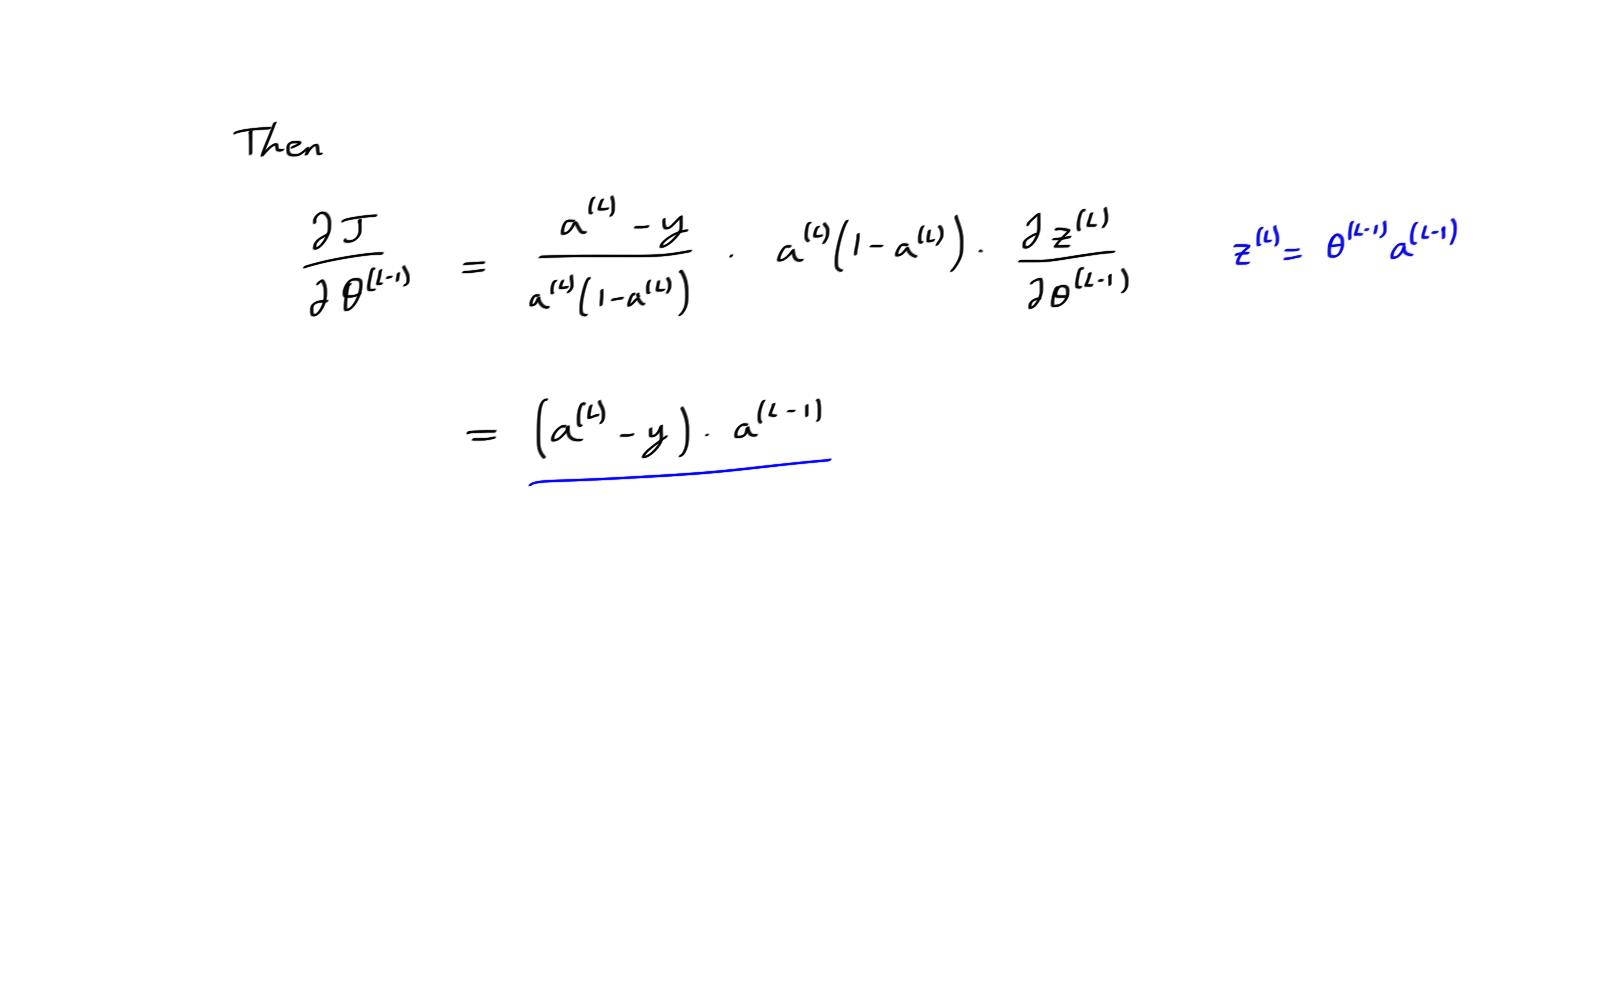 Then
∂J/∂θ^(L-1) = (a^(L) - y)/(a^(L)(1-a^(L))) · a^(L)(1-a^(L)) · ∂z^(L)/∂θ^(L-1) z^(L) = θ^(L-1) a^(L-1)
= (a^(L) - y) · a^(L-1)